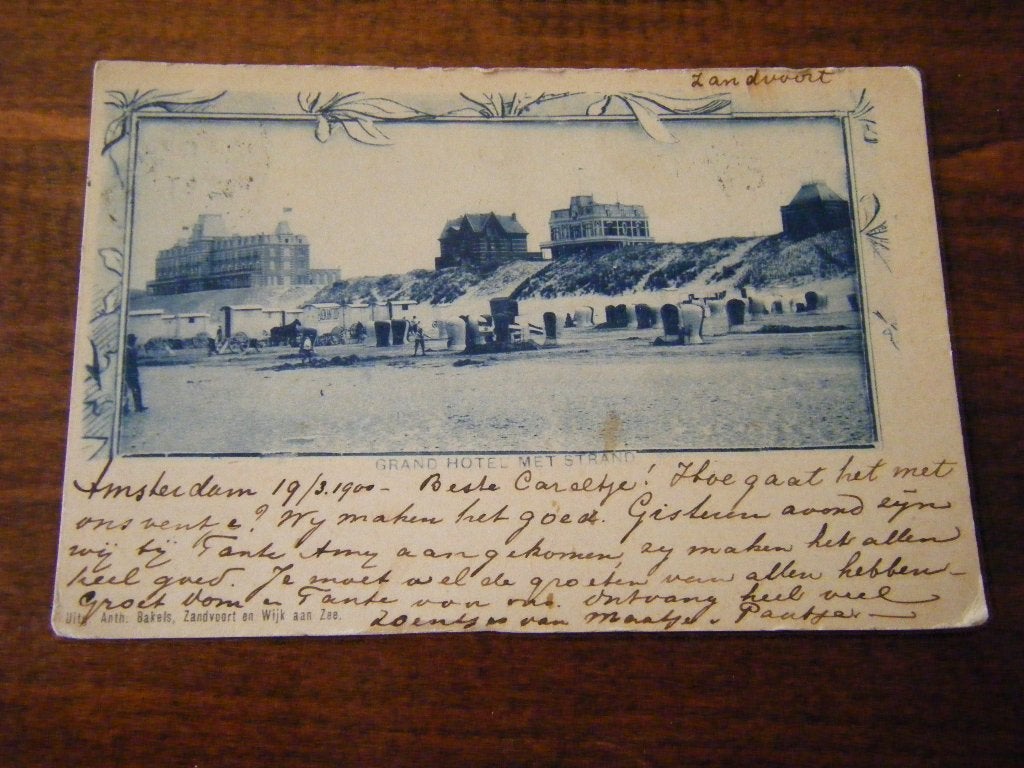 Zandvoort
GRAND HOTEL MET STRAND
Amsterdam 19/3.1900 - Beste Careltje! Hoe gaat het met
ons ventje? Wij maken het goed. Gisteren avond zijn
wij bij Tante Amy aangekomen, zij maken het allen
heel goed. Je moet wel de groeten van allen hebben -
Groet Oom en Tante van ons. Ontvang heel veel
Zoentjes van Maatje. Paatje -
Uitg. Anth. Bakels, Zandvoort en Wijk aan Zee.